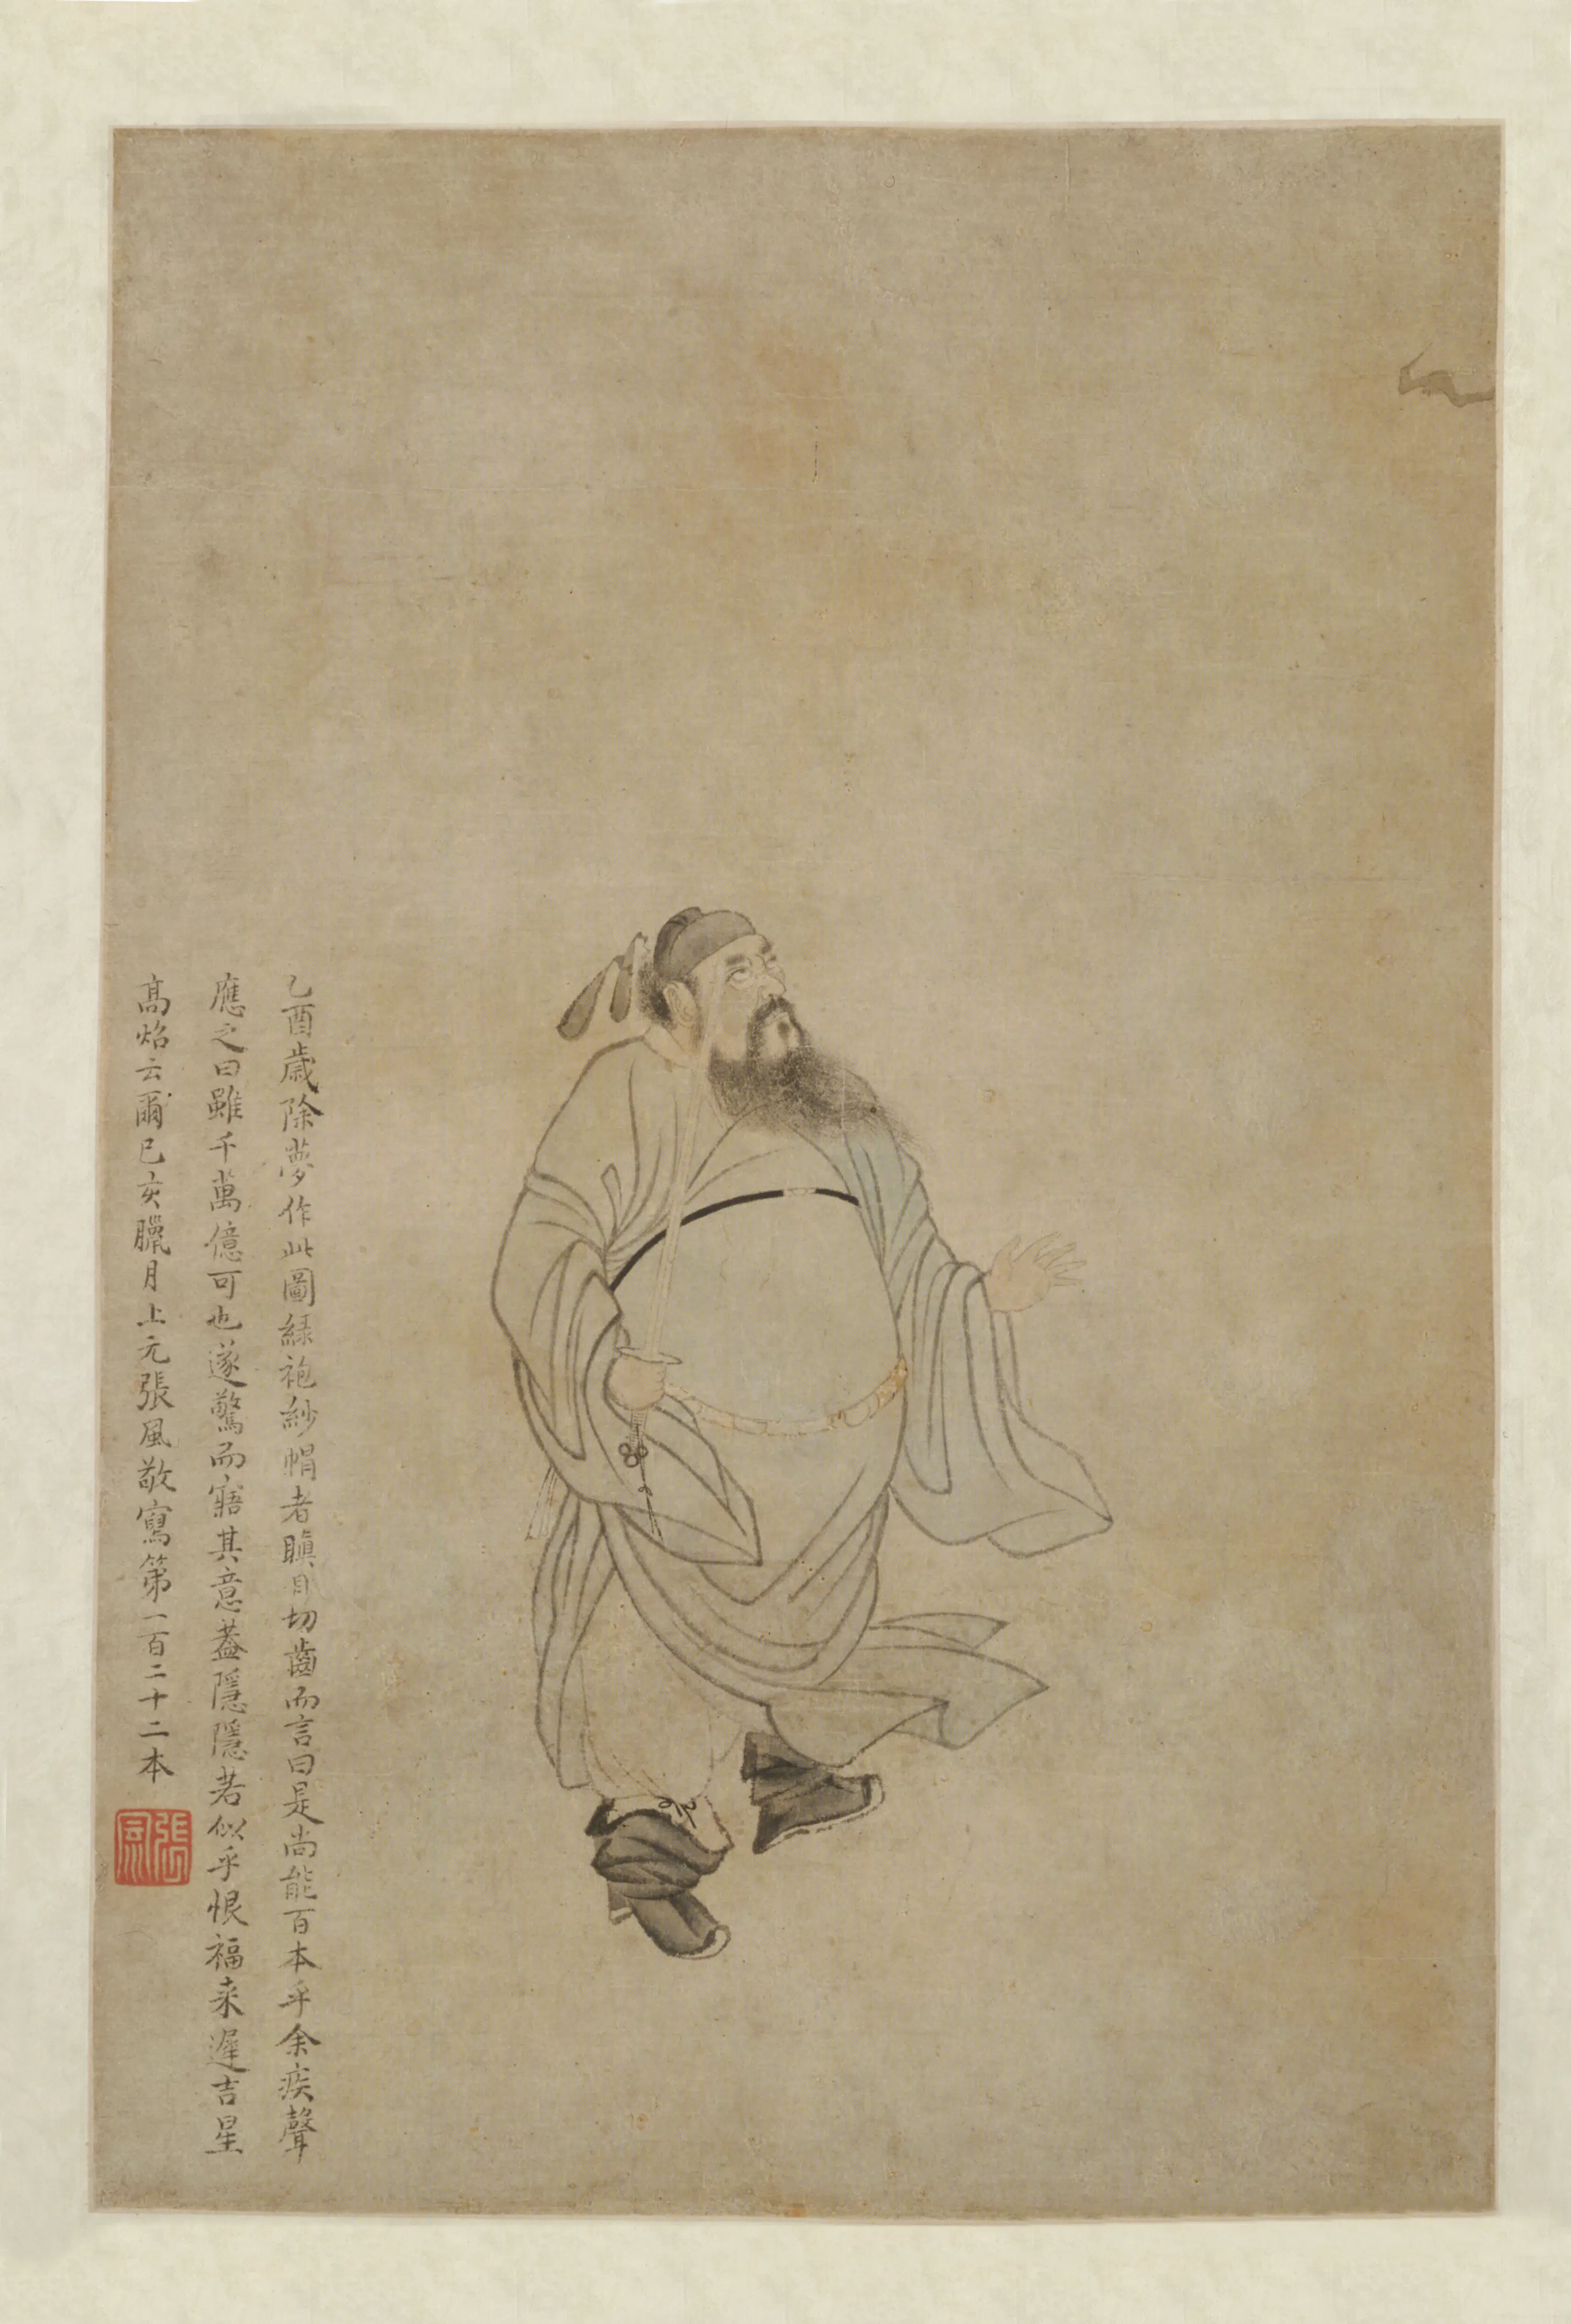 乙酉歲除夢作此圖綠袍紗帽者瞋目切齒而言曰是尚能百本乎余疾聲
應之曰雖千萬億可也遂驚而寤其意蓋隱隱若似乎恨福来遲吉星
高焰云爾己亥臘月上元張風敬寫第一百二十二本
張